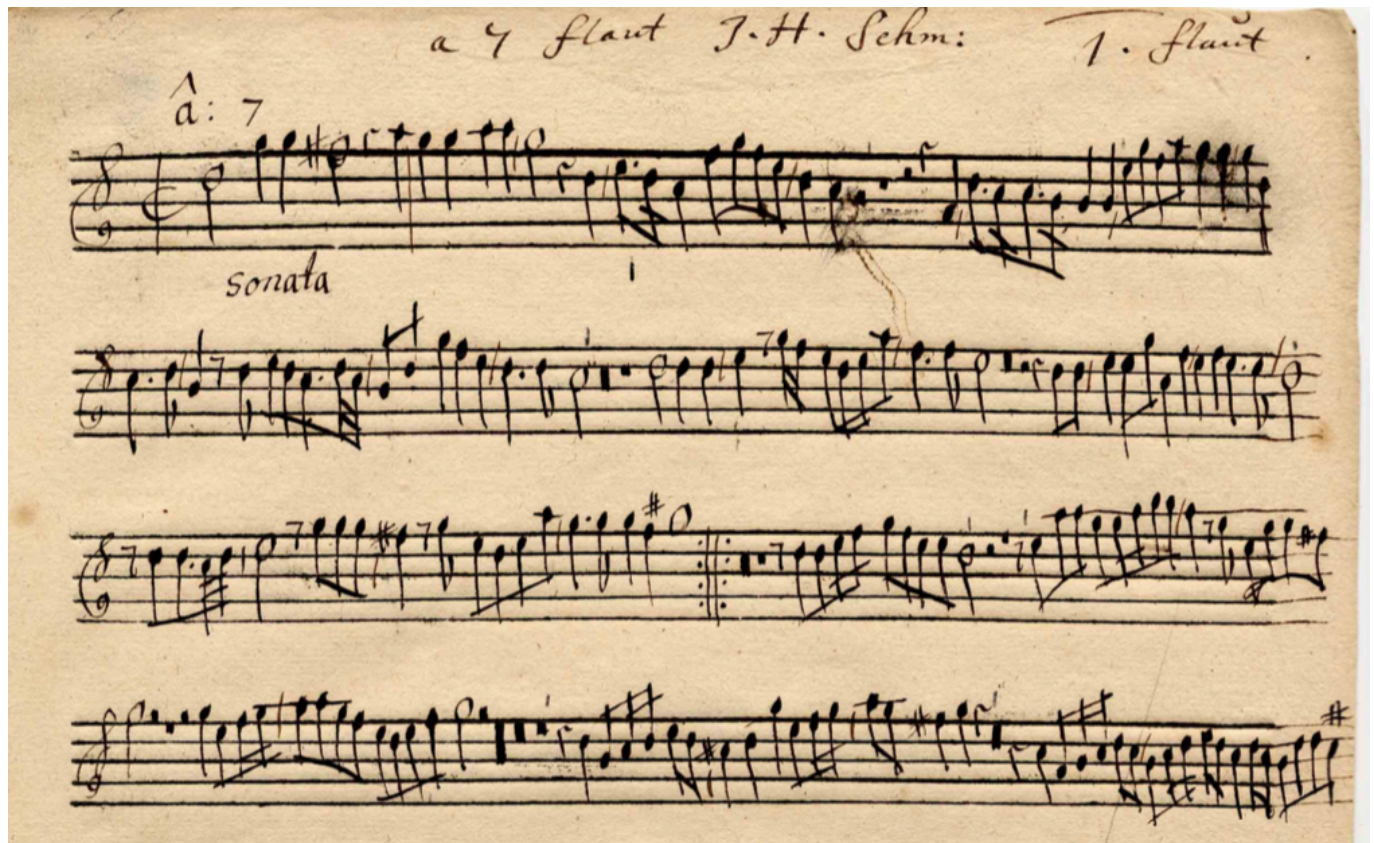 a 7 flaut J. H. Schm: 1. flaut.
â: 7
sonata